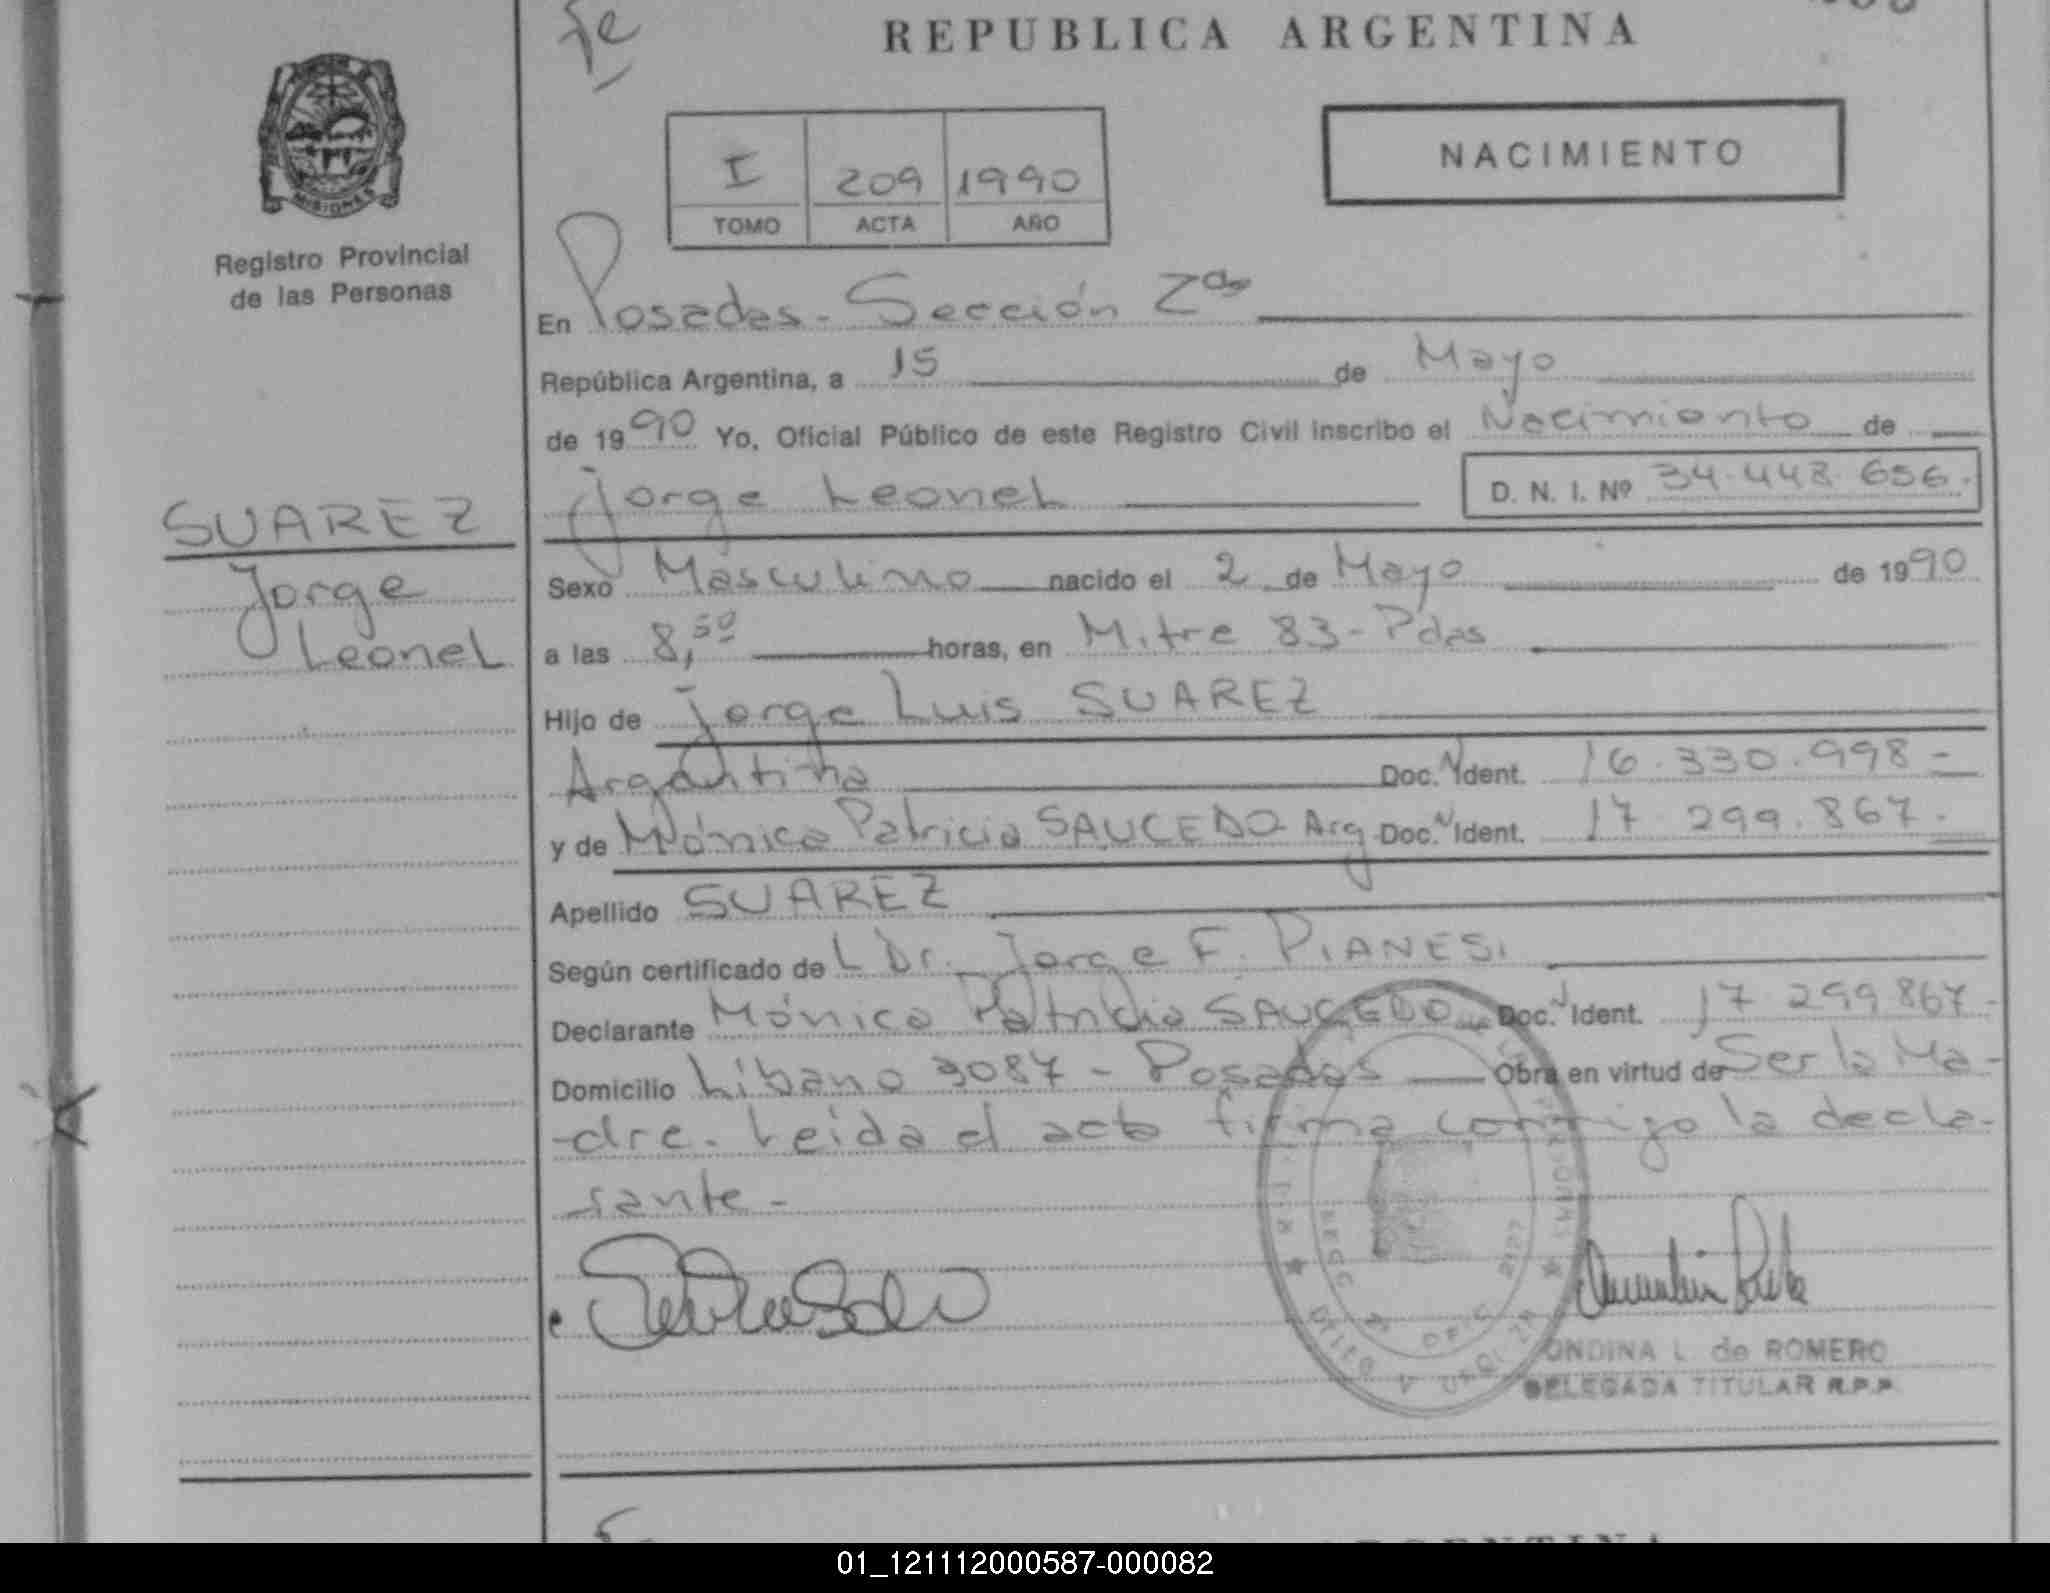 REPUBLICA ARGENTINA
MISIONES
Registro Provincial
de las Personas
I 209 1990
TOMO ACTA AÑO
NACIMIENTO
En Posadas - Sección 2da
República Argentina, a 15 de Mayo
de 1990 Yo, Oficial Público de este Registro Civil inscribo el Nacimiento de
Jorge Leonel D. N. I. Nº 34.448.656.
SUAREZ
Jorge
Leonel
Sexo Masculino nacido el 2 de Mayo de 1990
a las 8,50 horas, en Mitre 83 - Pdas
Hijo de Jorge Luis SUAREZ
Argentina Doc. Ident. 16.330.998 -
y de Mónica Patricia SAUCEDO - Arg Doc. Ident. 17.299.867.
Apellido SUAREZ
Según certificado de L Dr. Jorge F. PIANESI
Declarante Mónica Patricia SAUCEDO Doc. Ident. 17.299.867 -
Domicilio Libano 3087 - Posadas Obra en virtud de Ser la Ma-
-dre. Leida el acta firma conmigo la decla-
rante -
ONDINA L. de ROMERO
DELEGADA TITULAR R.P.P.
01_121112000587-000082